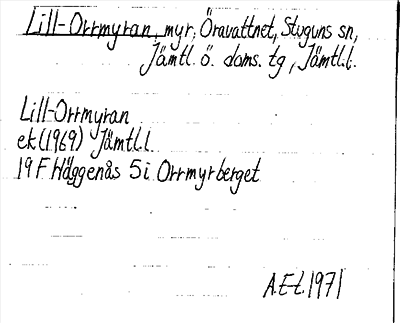 Lill-Orrmyran, myr, Öravattnet, Stuguns sn,
Jämtl. ö. doms. tg, Jämtl.l.
Lill-Orrmyran
ek (1969) Jämtl.l.
19 F Häggenås 5i Orrmyrberget
A.E-t. 1971